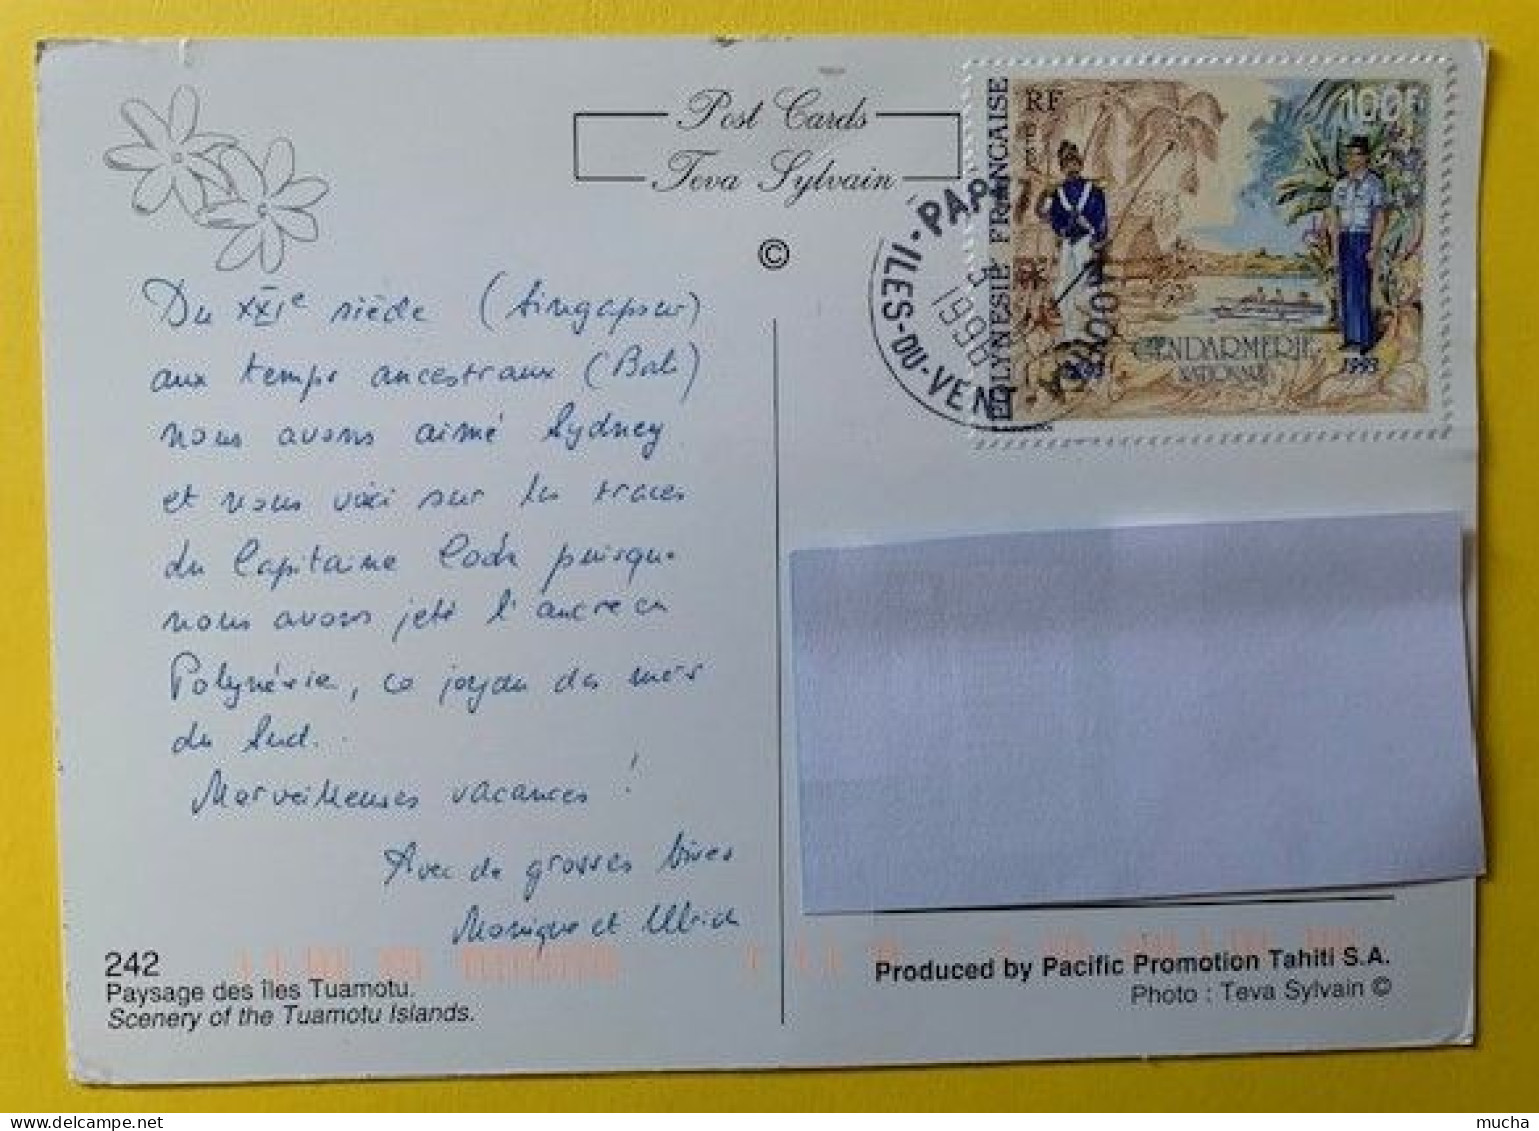 Post Cards
Teva Sylvain
©
RF
100F
POLYNÉSIE FRANÇAISE
GENDARMERIE
NATIONALE
1993
ILES-DU-VENT
1998
Du XXIe siècle (Singapour)
aux temps ancestraux (Bali)
nous avons aimé Sydney
et nous voici sur les traces
du Capitaine Cook puisque
nous avons jeté l'ancre en
Polynésie, ce joyau des mers
du Sud..
Merveilleuses vacances !
Avec de grosses bises
Monique et Ulrich
242
Paysage des îles Tuamotu.
Scenery of the Tuamotu Islands.
Produced by Pacific Promotion Tahiti S.A.
Photo : Teva Sylvain ©
mucha
delcampe.net